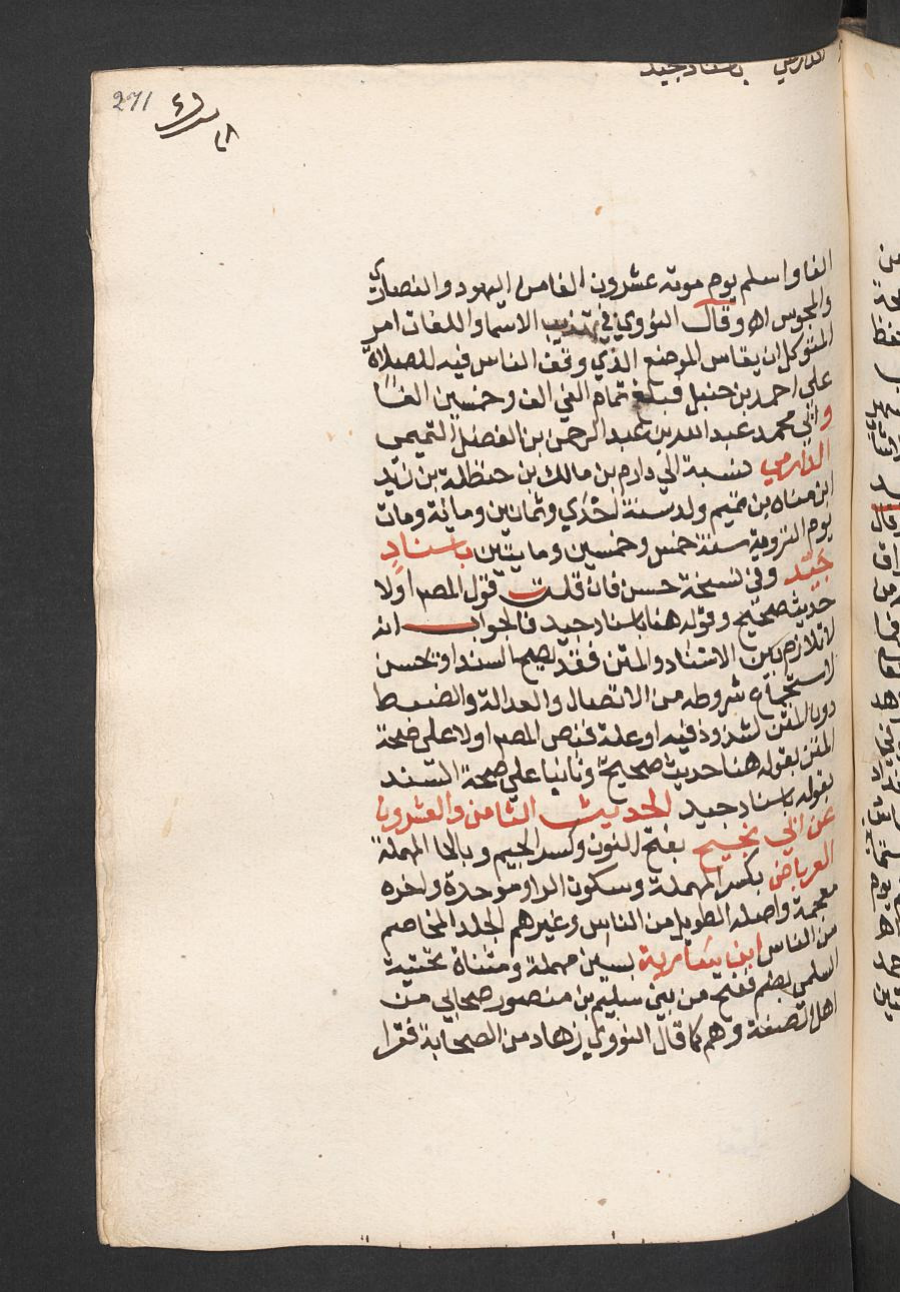 الدارمي باسناد جيد
271
الفا واسلم يوم موته عشرون الفا من اليهود والنصارى
والمجوس اه وقال النووي في تهذيب الاسما واللغات امر
المتوكل ان يقاس الموضع الذي وقف الناس فيه للصلاة
على احمد بن حنبل فبلغ تمام الفي الف وخمسين الفا
وابي محمد عبد الله بن عبد الرحمن بن الفضل التميمي
الدارمي نسبة الى دارم بن مالك بن حنظلة بن زيد
ابن مناة بن تميم ولد سنة احدي وثمانين ومائة ومات
يوم التروية سنة خمس وخمسين ومايتين باسنادٍ
جيّد وفي نسخة حسن فان قلت قول المصم اولا
حديث صحيح وقوله هنا باسناد جيد فالجواب انه
لا تلازم بين الاسناد والمتن فقد يصح السند او يحسن
لاستجماع شروطه من الاتصال والعدالة والضبط
دون المتن لشذوذ فيه او علة فنص المصم اولا على صحة
المتن بقوله هنا حديث صحيح وثانيا علي صحة السند
بقوله باسناد جيد الحديث الثامن والعشرون
عن ابي نجيح بفتح النون وكسر الجيم وبالحا المهملة
العرباض بكسر المهملة وسكون الرا وموحدة واخره
معجمة واصله الطويل من الناس وغيرهم الجلد المخاصم
من الناس ابن سارية بسين مهملة ومثناة تحتية
السلمي بضم ففتح من بني سليم بن منصور صحابي من
اهل الصفة وهم كما قال النووي زهاد من الصحابة فقرا